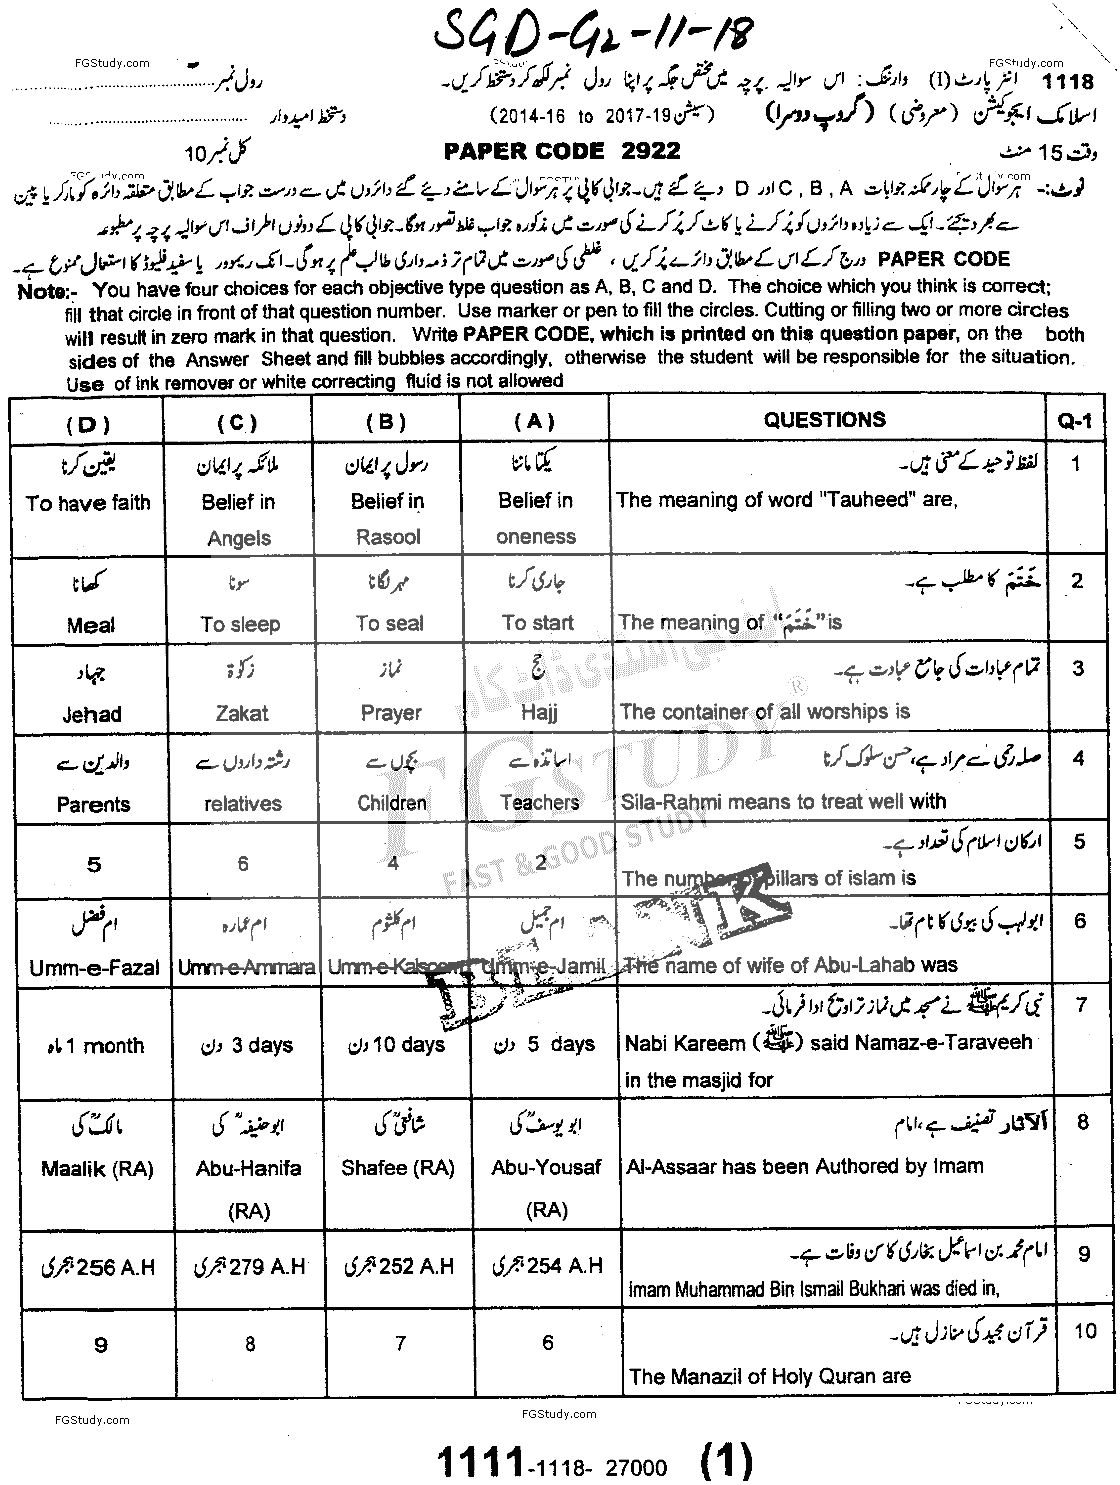 SGD-G2-11-18
FGStudy.com
FGStudy.com
1118 انٹر پارٹ (I) وارننگ: اس سوالیہ پرچہ میں مختص جگہ پر اپنا رول نمبر لکھ کر دستخط کریں۔ رول نمبر
اسلامک ایجوکیشن (معروضی) (گروپ دوسرا) (سیشن 2017-19 to 2014-16) دستخط امیدوار
وقت 15 منٹ PAPER CODE 2922 کل نمبر 10
نوٹ:- ہر سوال کے چار ممکنہ جوابات A , B , C اور D دیئے گئے ہیں۔ جوابی کاپی پر ہر سوال کے سامنے دیئے گئے دائروں میں سے درست جواب کے مطابق متعلقہ دائرہ کو مارکر یا پین
سے بھر دیجئے۔ ایک سے زیادہ دائروں کو پُر کرنے یا کاٹ کر پُر کرنے کی صورت میں مذکورہ جواب غلط تصور ہوگا۔ جوابی کاپی کے دونوں اطراف اس سوالیہ پرچہ پر مطبوعہ
PAPER CODE درج کرکے اس کے مطابق دائرے پُر کریں ، غلطی کی صورت میں تمام تر ذمہ داری طالب علم پر ہوگی۔ انک ریموور یا سفید فلیوڈ کا استعمال ممنوع ہے۔
Note:- You have four choices for each objective type question as A, B, C and D. The choice which you think is correct;
fill that circle in front of that question number. Use marker or pen to fill the circles. Cutting or filling two or more circles
will result in zero mark in that question. Write PAPER CODE, which is printed on this question paper, on the both
sides of the Answer Sheet and fill bubbles accordingly, otherwise the student will be responsible for the situation.
Use of ink remover or white correcting fluid is not allowed
(D) (C) (B) (A) QUESTIONS Q-1
یقین کرنا ملائکہ پر ایمان رسول پر ایمان یکتا ماننا لفظ توحید کے معنی ہیں۔ 1
To have faith Belief in Belief in Belief in The meaning of word "Tauheed" are,
Angels Rasool oneness
کھانا سونا مہر لگانا جاری کرنا خَتَمَ کا مطلب ہے۔ 2
Meal To sleep To seal To start The meaning of “خَتَمَ” is
جہاد زکوٰۃ نماز حج تمام عبادات کی جامع عبادت ہے۔ 3
Jehad Zakat Prayer Hajj The container of all worships is
والدین سے رشتہ داروں سے بچوں سے اساتذہ سے صلہ رحمی سے مراد ہے، حسن سلوک کرنا 4
Parents relatives Children Teachers Sila-Rahmi means to treat well with
ارکان اسلام کی تعداد ہے۔ 5
5 6 4 2 The number of pillars of islam is
ام فضل ام عمارہ ام کلثوم ام جمیل ابولہب کی بیوی کا نام تھا۔ 6
Umm-e-Fazal Umm-e-Ammara Umm-e-Kalsoem Umm-e-Jamil The name of wife of Abu-Lahab was
نبی کریم ﷺ نے مسجد میں نماز تراویح ادا فرمائی۔ 7
1 month ماہ 3 days دن 10 days دن 5 days دن Nabi Kareem (ﷺ) said Namaz-e-Taraveeh
in the masjid for
مالکؒ کی ابو حنیفہؒ کی شافعیؒ کی ابو یوسفؒ کی اَلآثار تصنیف ہے، امام 8
Maalik (RA) Abu-Hanifa Shafee (RA) Abu-Yousaf Al-Assaar has been Authored by Imam
(RA) (RA)
امام محمد بن اسماعیل بخاری کا سن وفات ہے۔ 9
256 A.H ہجری 279 A.H ہجری 252 A.H ہجری 254 A.H ہجری Imam Muhammad Bin Ismail Bukhari was died in,
قرآن مجید کی منازل ہیں۔ 10
9 8 7 6
The Manazil of Holy Quran are
ایف جی اسٹڈی ڈاٹ کام
FGSTUDY ®
FAST & GOOD STUDY
FGStudy.com
FGStudy.com
1111-1118- 27000 (1)